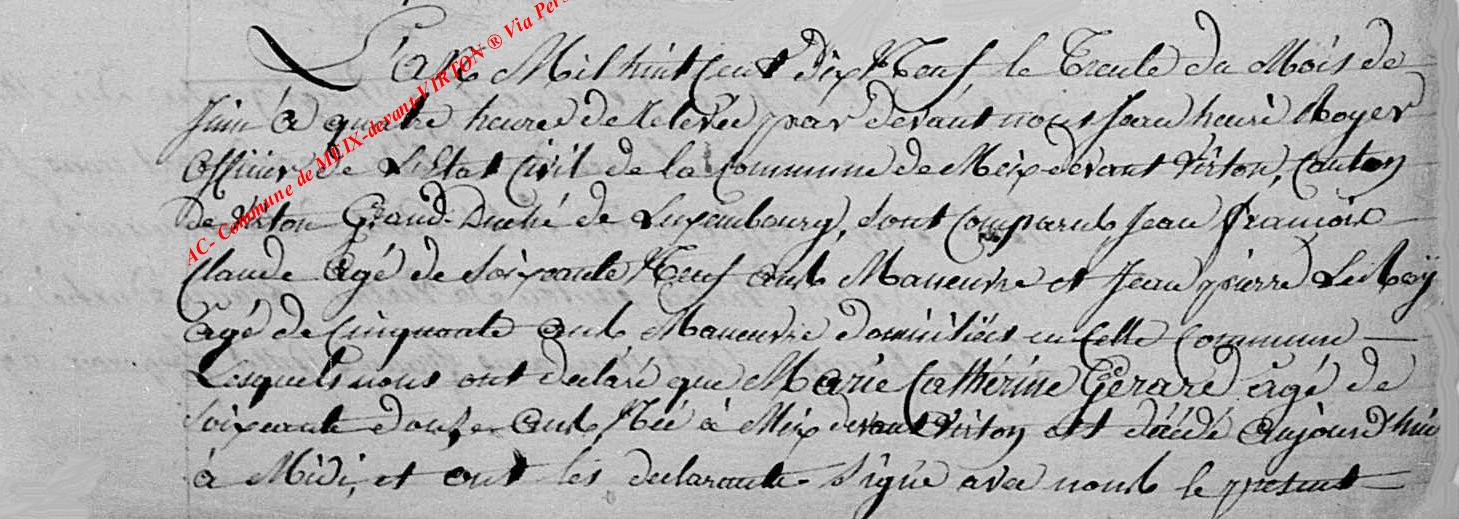 L'an Mil huit cent dix Neuf le Trente du Mois de
Juin à quatre heure de Relevée par devant nous Jean henri Royer
officier de L'Etat Civil de la Commune de Meix devant Virton, Canton
de Virton Grand-Duché de Luxembourg, sont Comparus Jean françois
Claude agé de soixante Neuf ans Maneuvre et Jean pierre
agé de Cinquante ans Maneuvre domiciliés en Cette Commune
Lesquels nous ont declaré que Marie Catherine Gerard agé de
soixante douze ans Née à Meix devant Virton est décédé aujourd'hui
à Midi, et ont les declarants signé avec nous le present
AC- Commune de MEIX-devant-VIRTON ® Via Pers